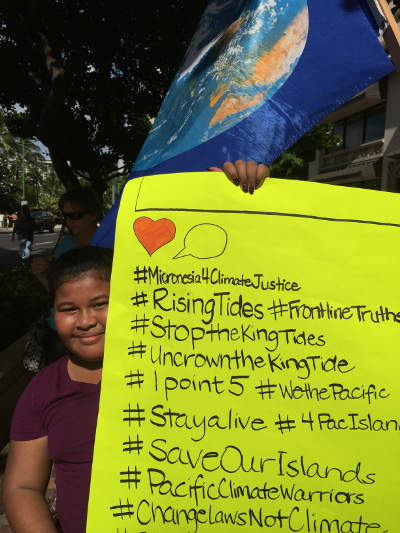 #Micronesia4ClimateJustice
#RisingTides #FrontlineTruths
#StoptheKingTides
#UncrowntheKingTide
#1point5 #WethePacific
#Stayalive #4PacIslan
#SaveOurIslands
#PacificClimateWarriors
#ChangeLawsNotClimate